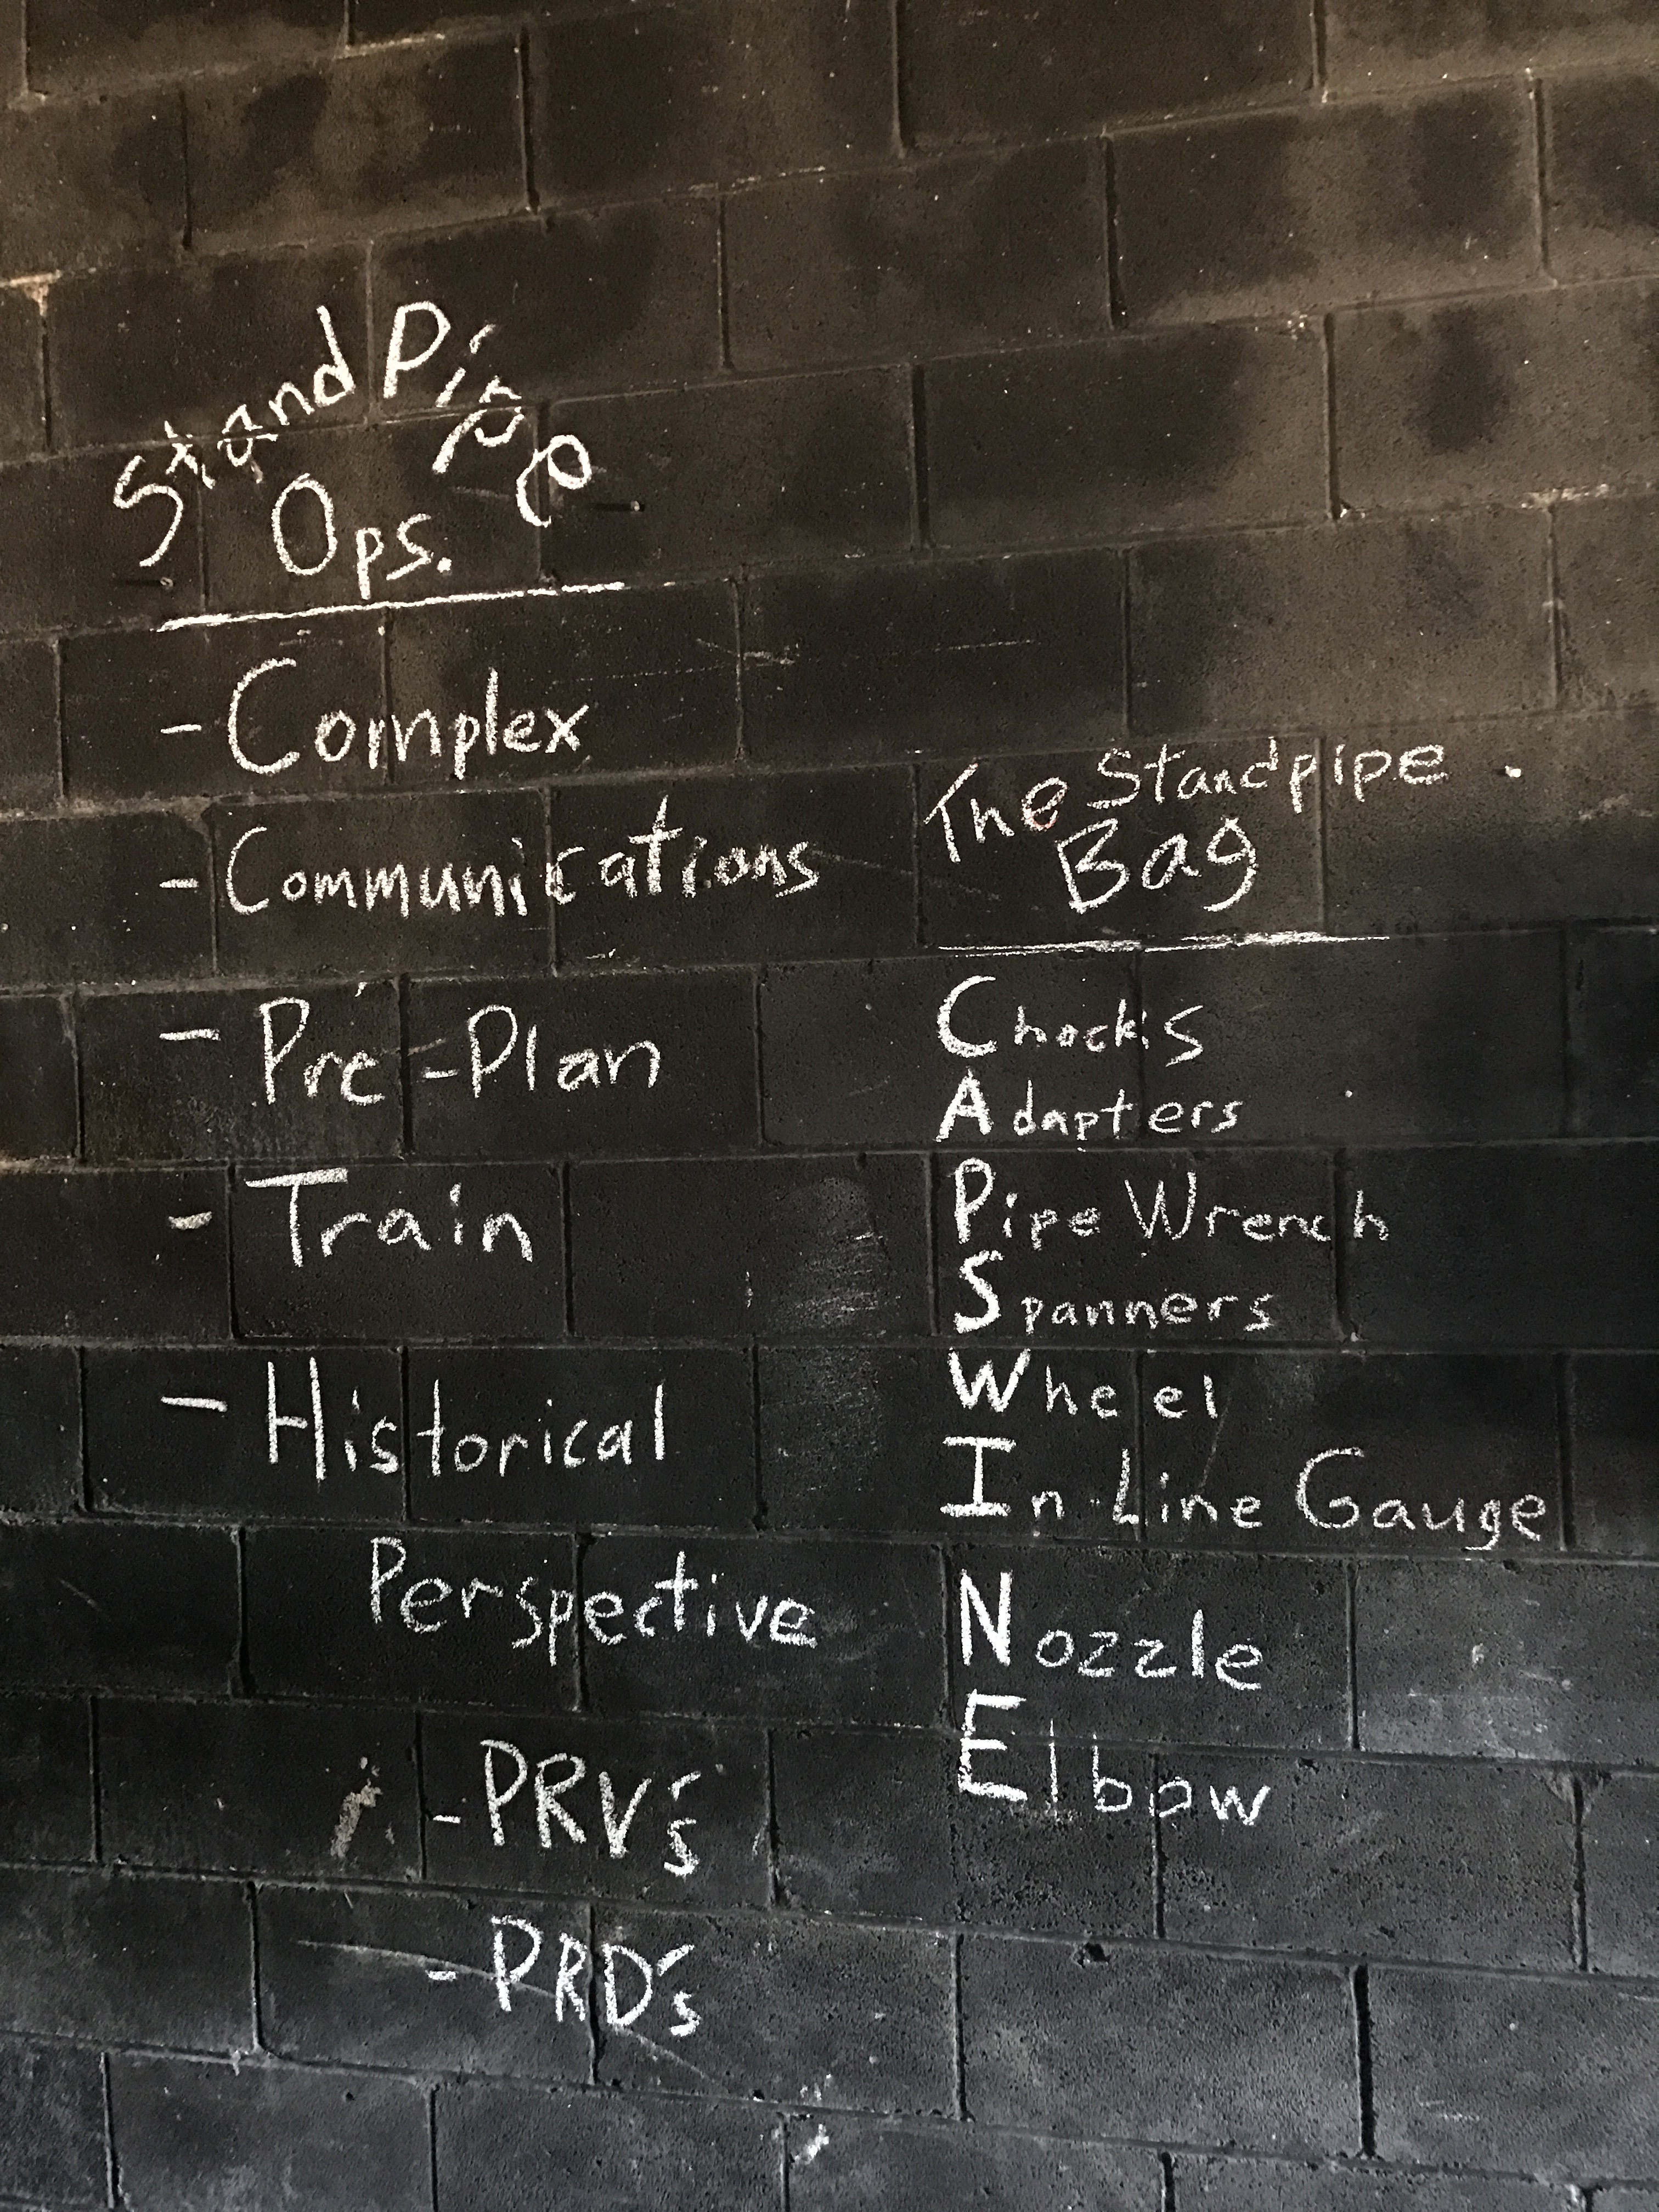 StandPipe
Ops.
- Complex
- Communications
- Pre-Plan
- Train
- Historical
Perspective
- PRV's
- PRD's
The Standpipe
Bag
Chocks
Adapters
Pipe Wrench
Spanners
Wheel
In-Line Gauge
Nozzle
Elbow